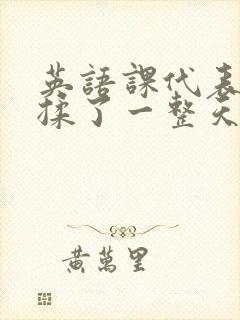 英語課代表
揉了一整天
黃萬里